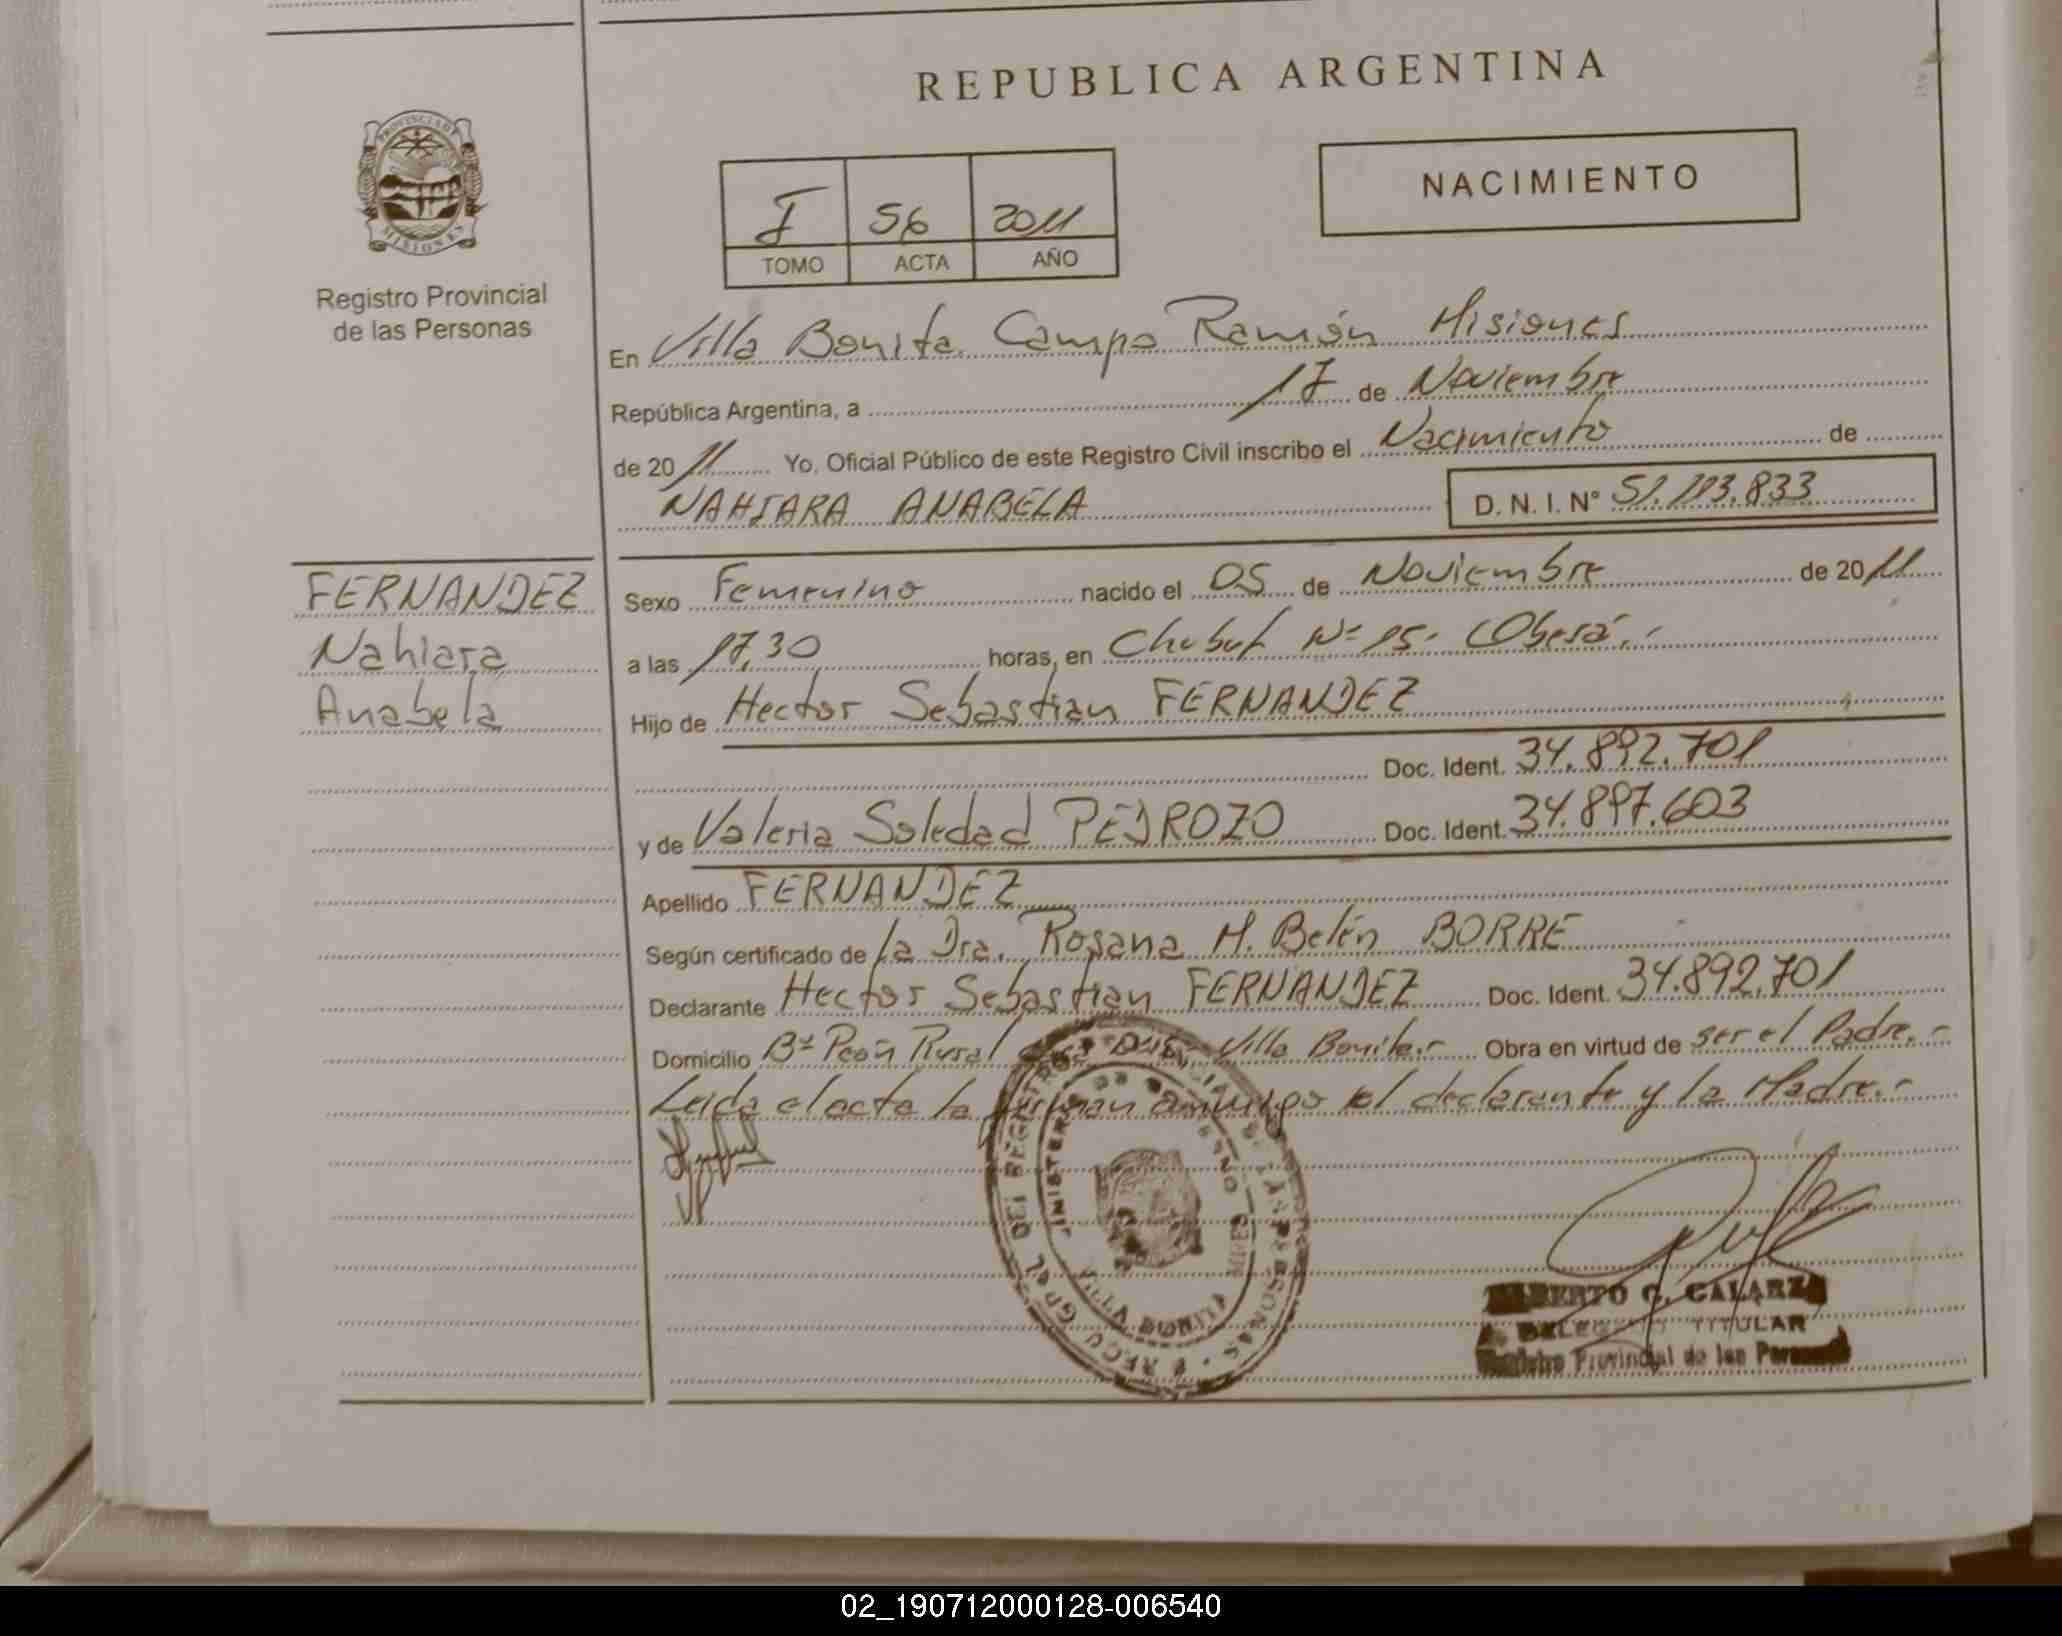 REPUBLICA ARGENTINA
PROVINCIA DE
MISIONES
Registro Provincial
de las Personas
I 56 2011
TOMO ACTA AÑO
NACIMIENTO
En Villa Bonita Campo Ramón Misiones
República Argentina, a 17 de Noviembre
de 2011 Yo, Oficial Público de este Registro Civil inscribo el Nacimiento de
NAHIARA ANABELA D. N. I. N° 51.113.833
FERNANDEZ
Nahiara
Anabela
Sexo Femenino nacido el 05 de Noviembre de 2011
a las 17,30 horas, en Chubut Nº 15.- Oberá.-
Hijo de Hector Sebastian FERNANDEZ
Doc. Ident. 34.892.701
y de Valeria Soledad PEDROZO Doc. Ident. 34.897.603
Apellido FERNANDEZ
Según certificado de la Dra. Rosana M. Belén BORRE
Declarante Hector Sebastian FERNANDEZ Doc. Ident. 34.892.701
Domicilio Bº Peón Rural Villa Bonita.- Obra en virtud de ser el Padre.-
Leida el acta la firman conmigo el declarante y la Madre.-
VILLA BONITA
C. GALARZA
TITULAR
Registro Provincial de las Personas
02_190712000128-006540